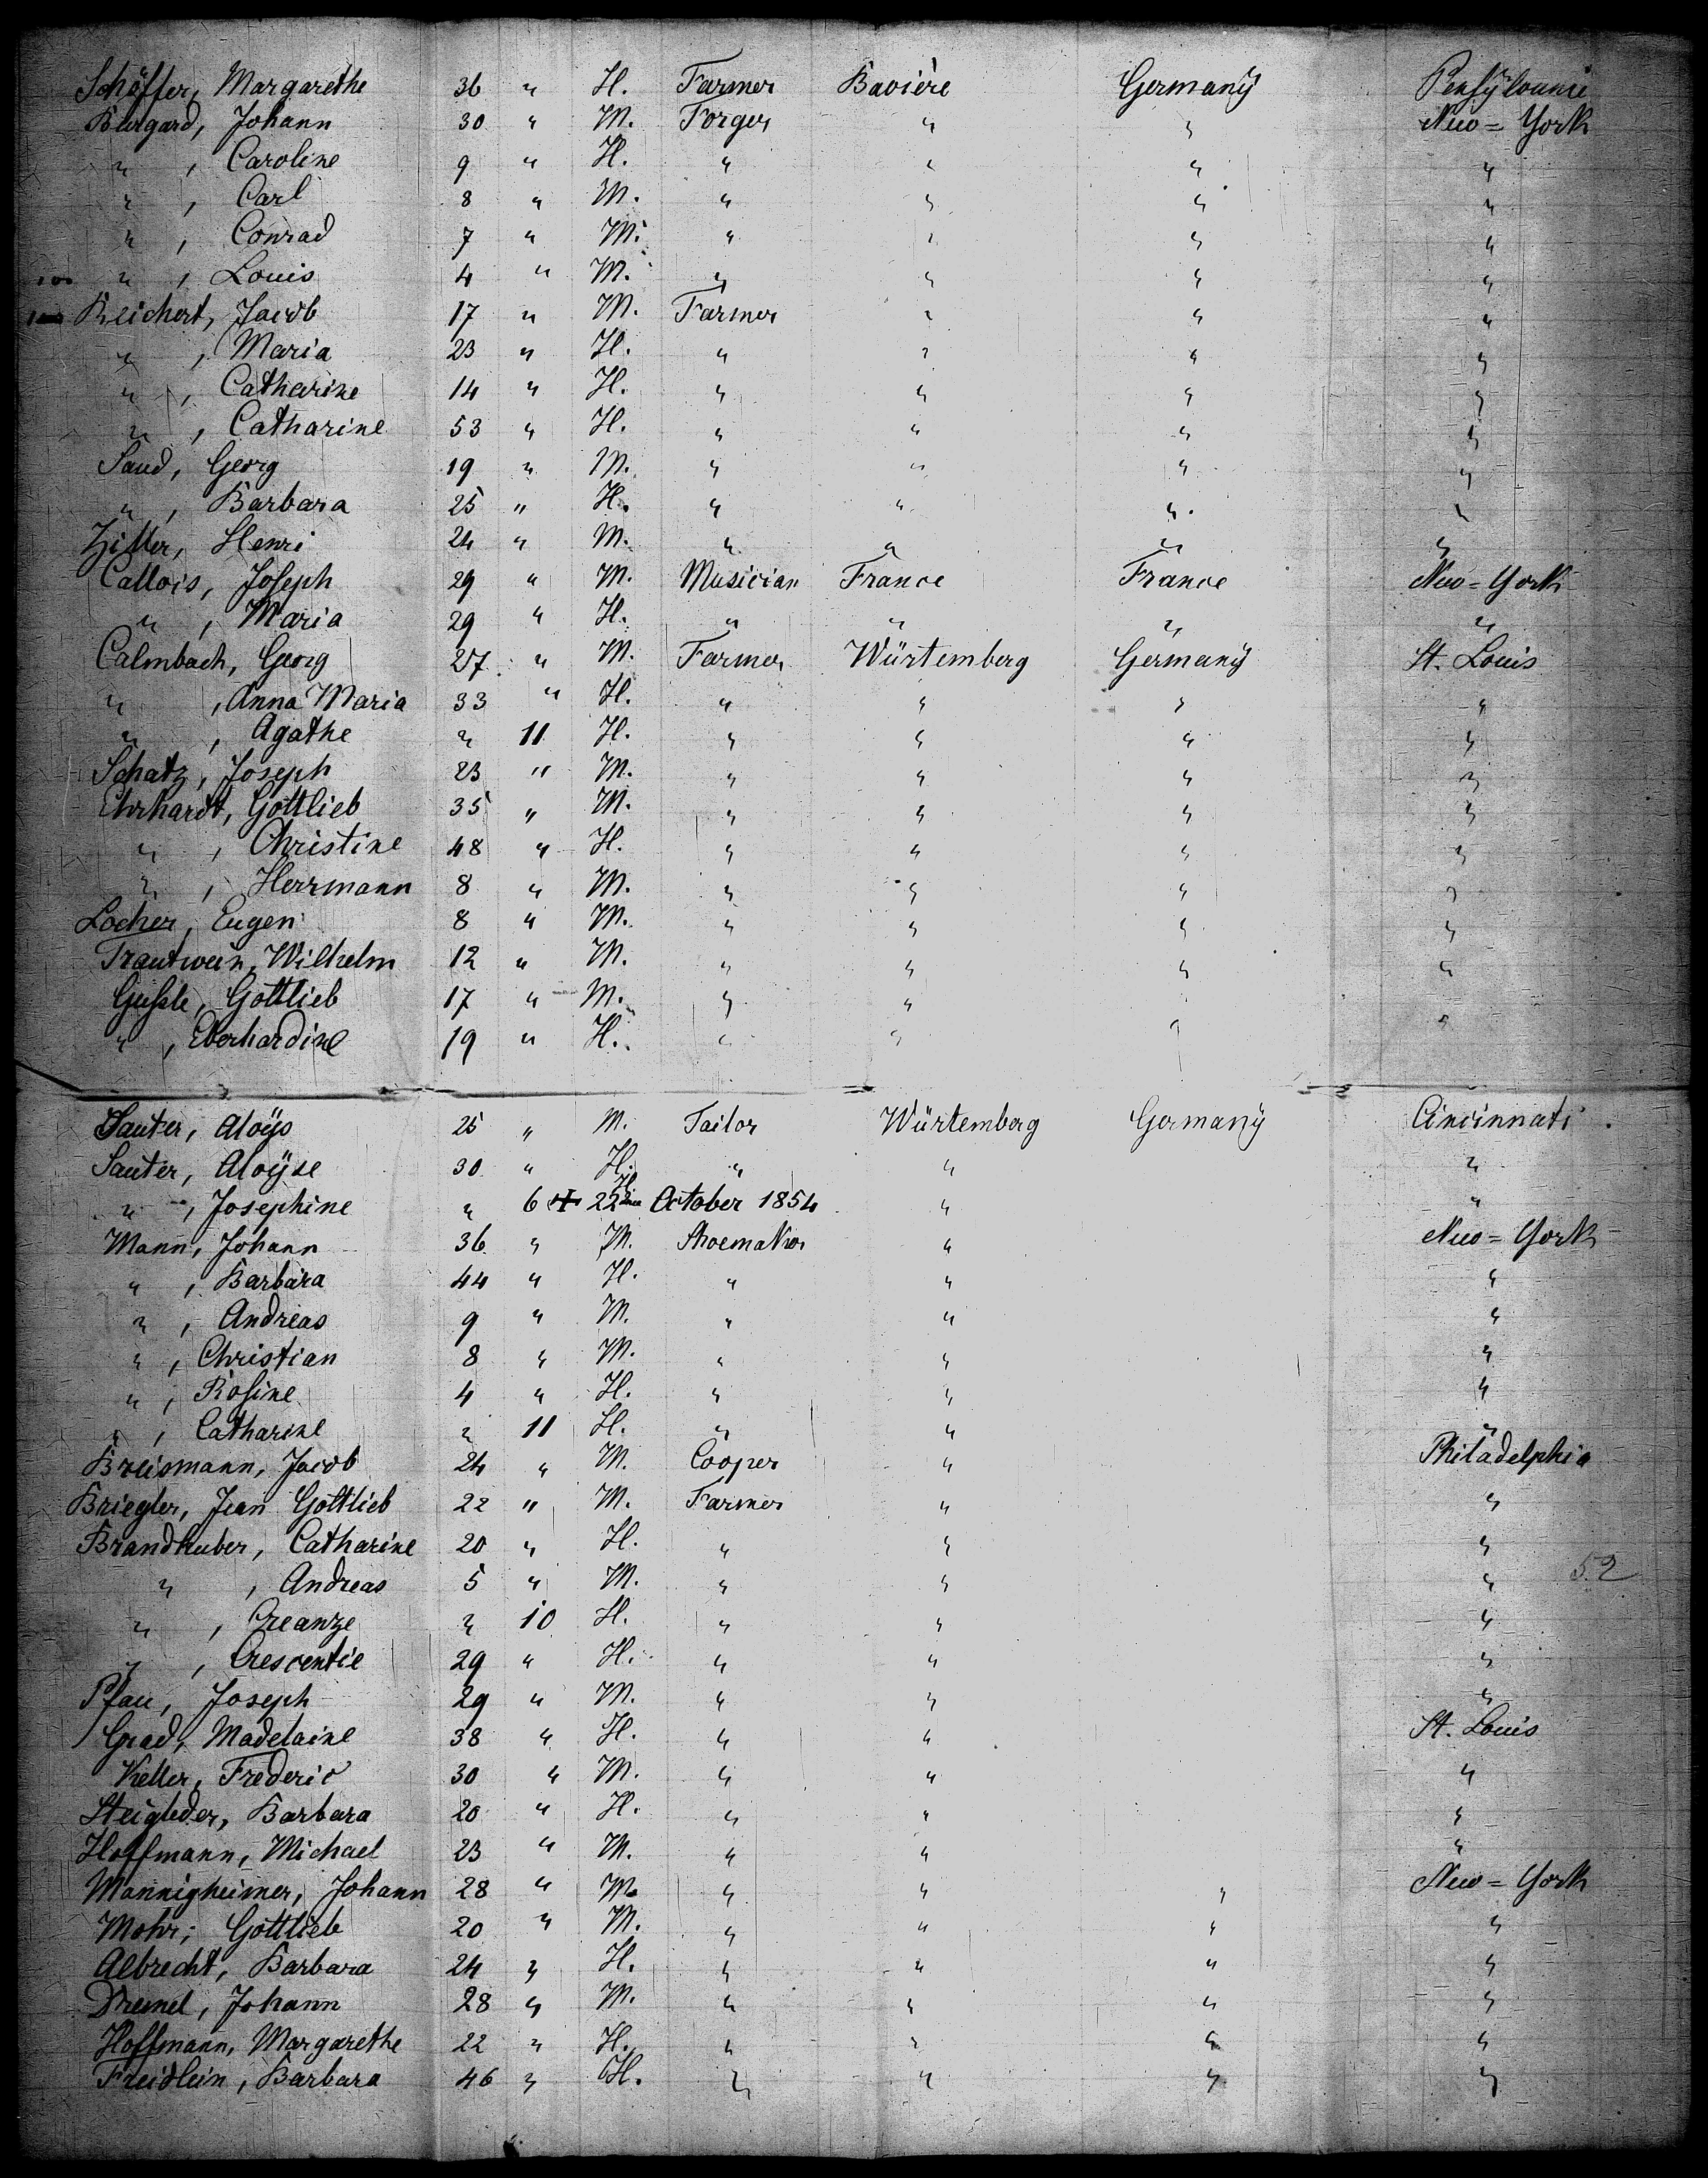 Schäffer, Margarethe 36 " H. Farmer Bavière Germanÿ Pensÿlvanie
Burgard, Johann 30 " M. Forger " " New=York
" , Caroline 9 " H. " " " "
" , Carl 8 " M. " " " "
" , Conrad 7 " M. " " " "
100 " , Louis 4 " M. " " " "
Reichert, Jacob 17 " M. Farmer " " "
" , Maria 23 " H. " " " "
" , Catharine 14 " H. " " " "
" , Catharine 53 " H. " " " "
Sand, Georg 19 " M. " " " "
" , Barbara 25 " H. " " " "
Ziller, Henri 24 " M. " " " "
Callois, Joseph 29 " M. Musician France France New=York
" , Maria 29 " H. " " " "
Calmbach, Georg 27 " M. Farmer Würtemberg Germanÿ St. Louis
" , Anna Maria 33 " H. " " " "
" , Agathe " 11 H. " " " "
Schatz, Joseph 23 " M. " " " "
Ehrhardt, Gottlieb 35 " M. " " " "
" , Christine 48 " H. " " " "
" , Herrmann 8 " M. " " " "
Locher, Eugen 8 " M. " " " "
Trautwein, Wilhelm 12 " M. " " " "
Gottlieb 17 " M. " " " "
" , Eberhardine 19 " H. " " " "
Sauter, Aloÿs 25 " M. Tailor Würtemberg Germanÿ Cincinnati
Sauter, Aloÿse 30 " H. " " "
" , Josephine " 6 H. + 22 October 1854 " "
Mann, Johann 36 " M. Shoemaker " New=York
" , Barbara 44 " H. " " "
" , Andreas 9 " M. " " "
" , Christian 8 " M. " " "
" , Rosine 4 " H. " " "
" , Catharine " 11 H. " " "
Breismann, Jacob 24 " M. Cooper " Philadelphia
Briegler, Jean Gottlieb 22 " M. Farmer " "
Brandhuber, Catharine 20 " H. " " "
" , Andreas 5 " M. " " " 52
" , Creanze " 10 H. " " "
" , Crescentie 29 " H. " " "
Pfau, Joseph 29 " M. " " "
Grad, Madelaine 38 " H. " " St. Louis
Keller, Frederic 30 " M. " " "
Steigleder, Barbara 20 " H. " " "
Hoffmann, Michael 23 " M. " " "
Mannigheimer, Johann 28 " M. " " " New=York
Mohr, Gottlieb 20 " M. " " " "
Albrecht, Barbara 24 " H. " " " "
Johann 28 " M. " " " "
Hoffmann, Margarethe 22 " H. " " " "
Freidlein, Barbara 46 " H. " " " "